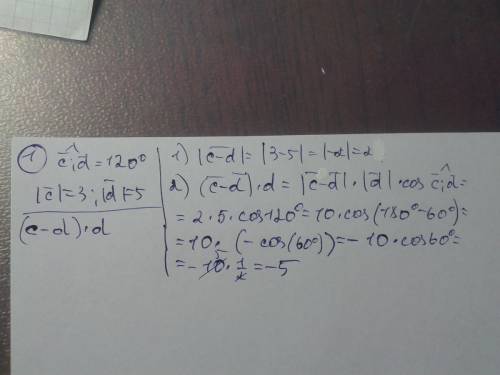 ① c̄;^d̄ = 120°
|c̄|=3; |d̄|=5
(c-d)·d
1) |c̄-d̄| = |3-5| = |-2| = 2
2) (c̄-d̄)·d = |c̄-d̄|·|d̄|·cos c̄;^d̄ =
= 2·5·cos120° = 10·cos(180°-60°) =
= 10·(-cos(60°)) = -10·cos60° =
= -10·1/2 = -5